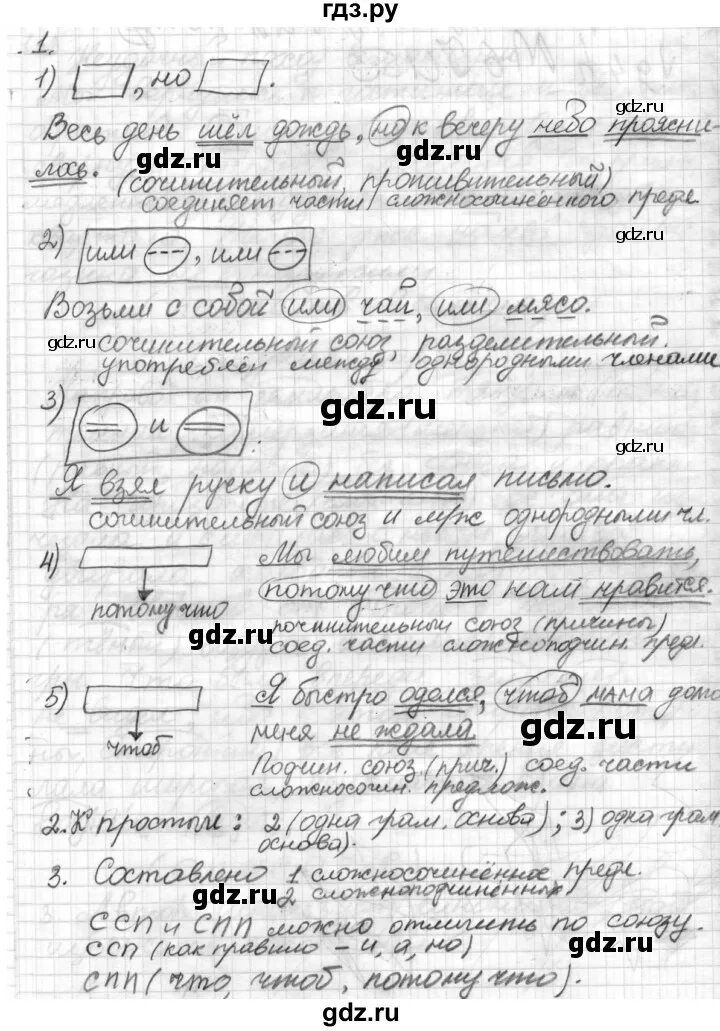 гдз.ру
1.
1) , но .
gdz.ru
Весь день шёл дождь, но к вечеру небо проясни
gdz.ru
gdz.ru
лось. (сочинительный, противительный)
соединяет части сложносочинённого предл.
gdz.ru
2) или , или
Возьми с собой или чай, или мясо.
gdz.ru
сочинительный союз, разделительный.
употреблён между однородными членами
gdz.ru
3) и .
gdz.ru
Я взял ручку и написал письмо.
сочинительный союз и мрж однородными чл.
4) Мы любим путешествовать,
gdz.ru
потому что это нам нравится.
потому что
gdz.ru
починительный союз (причины)
соед. части сложноподчин. предл.
5) Я быстро оделся, чтоб мама долго
чтоб
меня не ждала.
gdz.ru
gdz.ru
Подчин. союз (прич.) соед. части
сложносочин. предлож.
2. К простым: 2 (одна грам. основа); 3) одна грам
gdz.ru
основа).
3. Составлено 1 сложносочинённое предл.
gdz.ru
2 сложноподчинённых
ССП и СПП можно отличить по союзу.
ССП (как правило - и, а, но)
gdz.ru
СПП (что, чтоб, потому что).
gdz.ru
gdz.ru